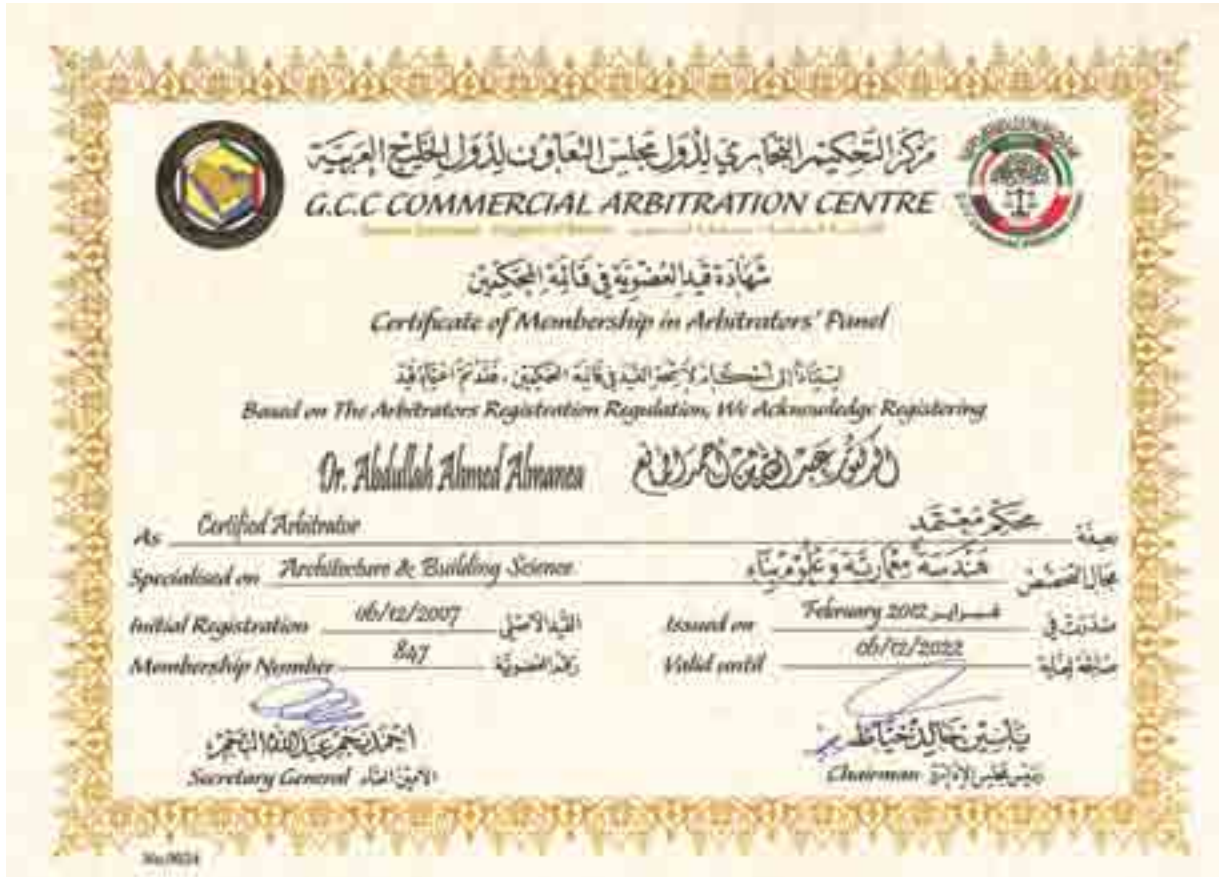 مركز التحكيم التجاري لدول مجلس التعاون لدول الخليج العربية
G.C.C COMMERCIAL ARBITRATION CENTRE
شهادة قيد العضوية في قائمة المحكمين
Certificate of Membership in Arbitrators' Panel
إستناداً إلى أحكام لائحة القيد في قائمة المحكمين ، فقد تم اعتماد قيد
Based on The Arbitrators Registration Regulation, We Acknowledge Registering
Dr. Abdullah Ahmed Almanea الدكتور عبد الله بن أحمد المانع
As Certified Arbitrator محكم معتمد بصفة
Specialised on Architecture & Building Science هندسة معمارية وعلوم بناء مجال التخصص
Initial Registration 06/12/2007 القيد الأصلي Issued on February 2012 فبراير صدرت في
Membership Number 847 رقم العضوية Valid until 06/12/2022 صالحة لغاية
أحمد نجم عبدالله النجم ياسين خالد خياط
Secretary General الأمين العام Chairman رئيس مجلس الإدارة